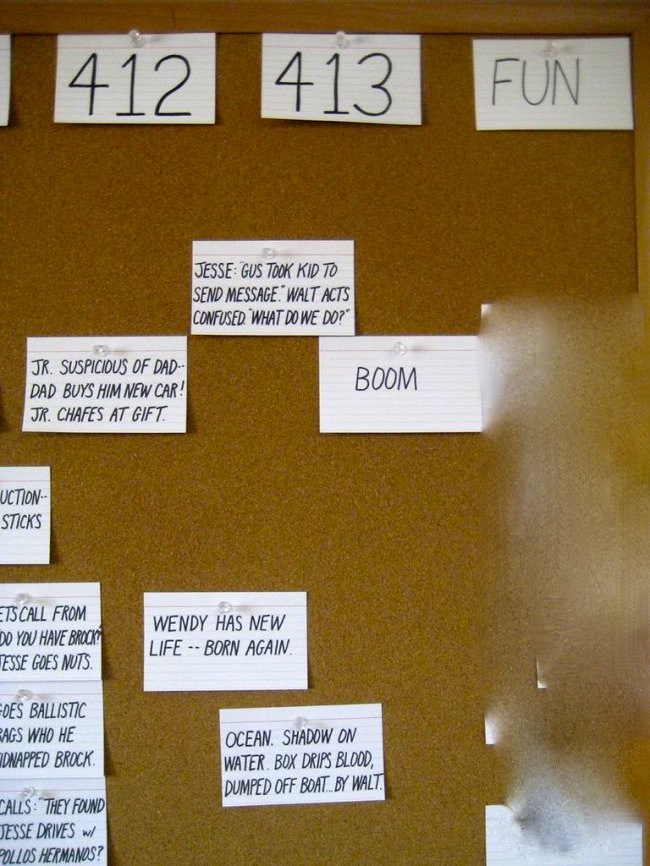 412
413
FUN
JESSE: "GUS TOOK KID TO
SEND MESSAGE." WALT ACTS
CONFUSED. "WHAT DO WE DO?"
JR. SUSPICIOUS OF DAD--
DAD BUYS HIM NEW CAR!
JR. CHAFES AT GIFT.
BOOM
UCTION--
STICKS
ETS CALL FROM
DO YOU HAVE BROCK?
JESSE GOES NUTS.
WENDY HAS NEW
LIFE -- BORN AGAIN.
GOES BALLISTIC
AGS WHO HE
IDNAPPED BROCK.
OCEAN. SHADOW ON
WATER. BOX DRIPS BLOOD,
DUMPED OFF BOAT.. BY WALT.
CALLS: "THEY FOUND
JESSE DRIVES W/
POLLOS HERMANOS?